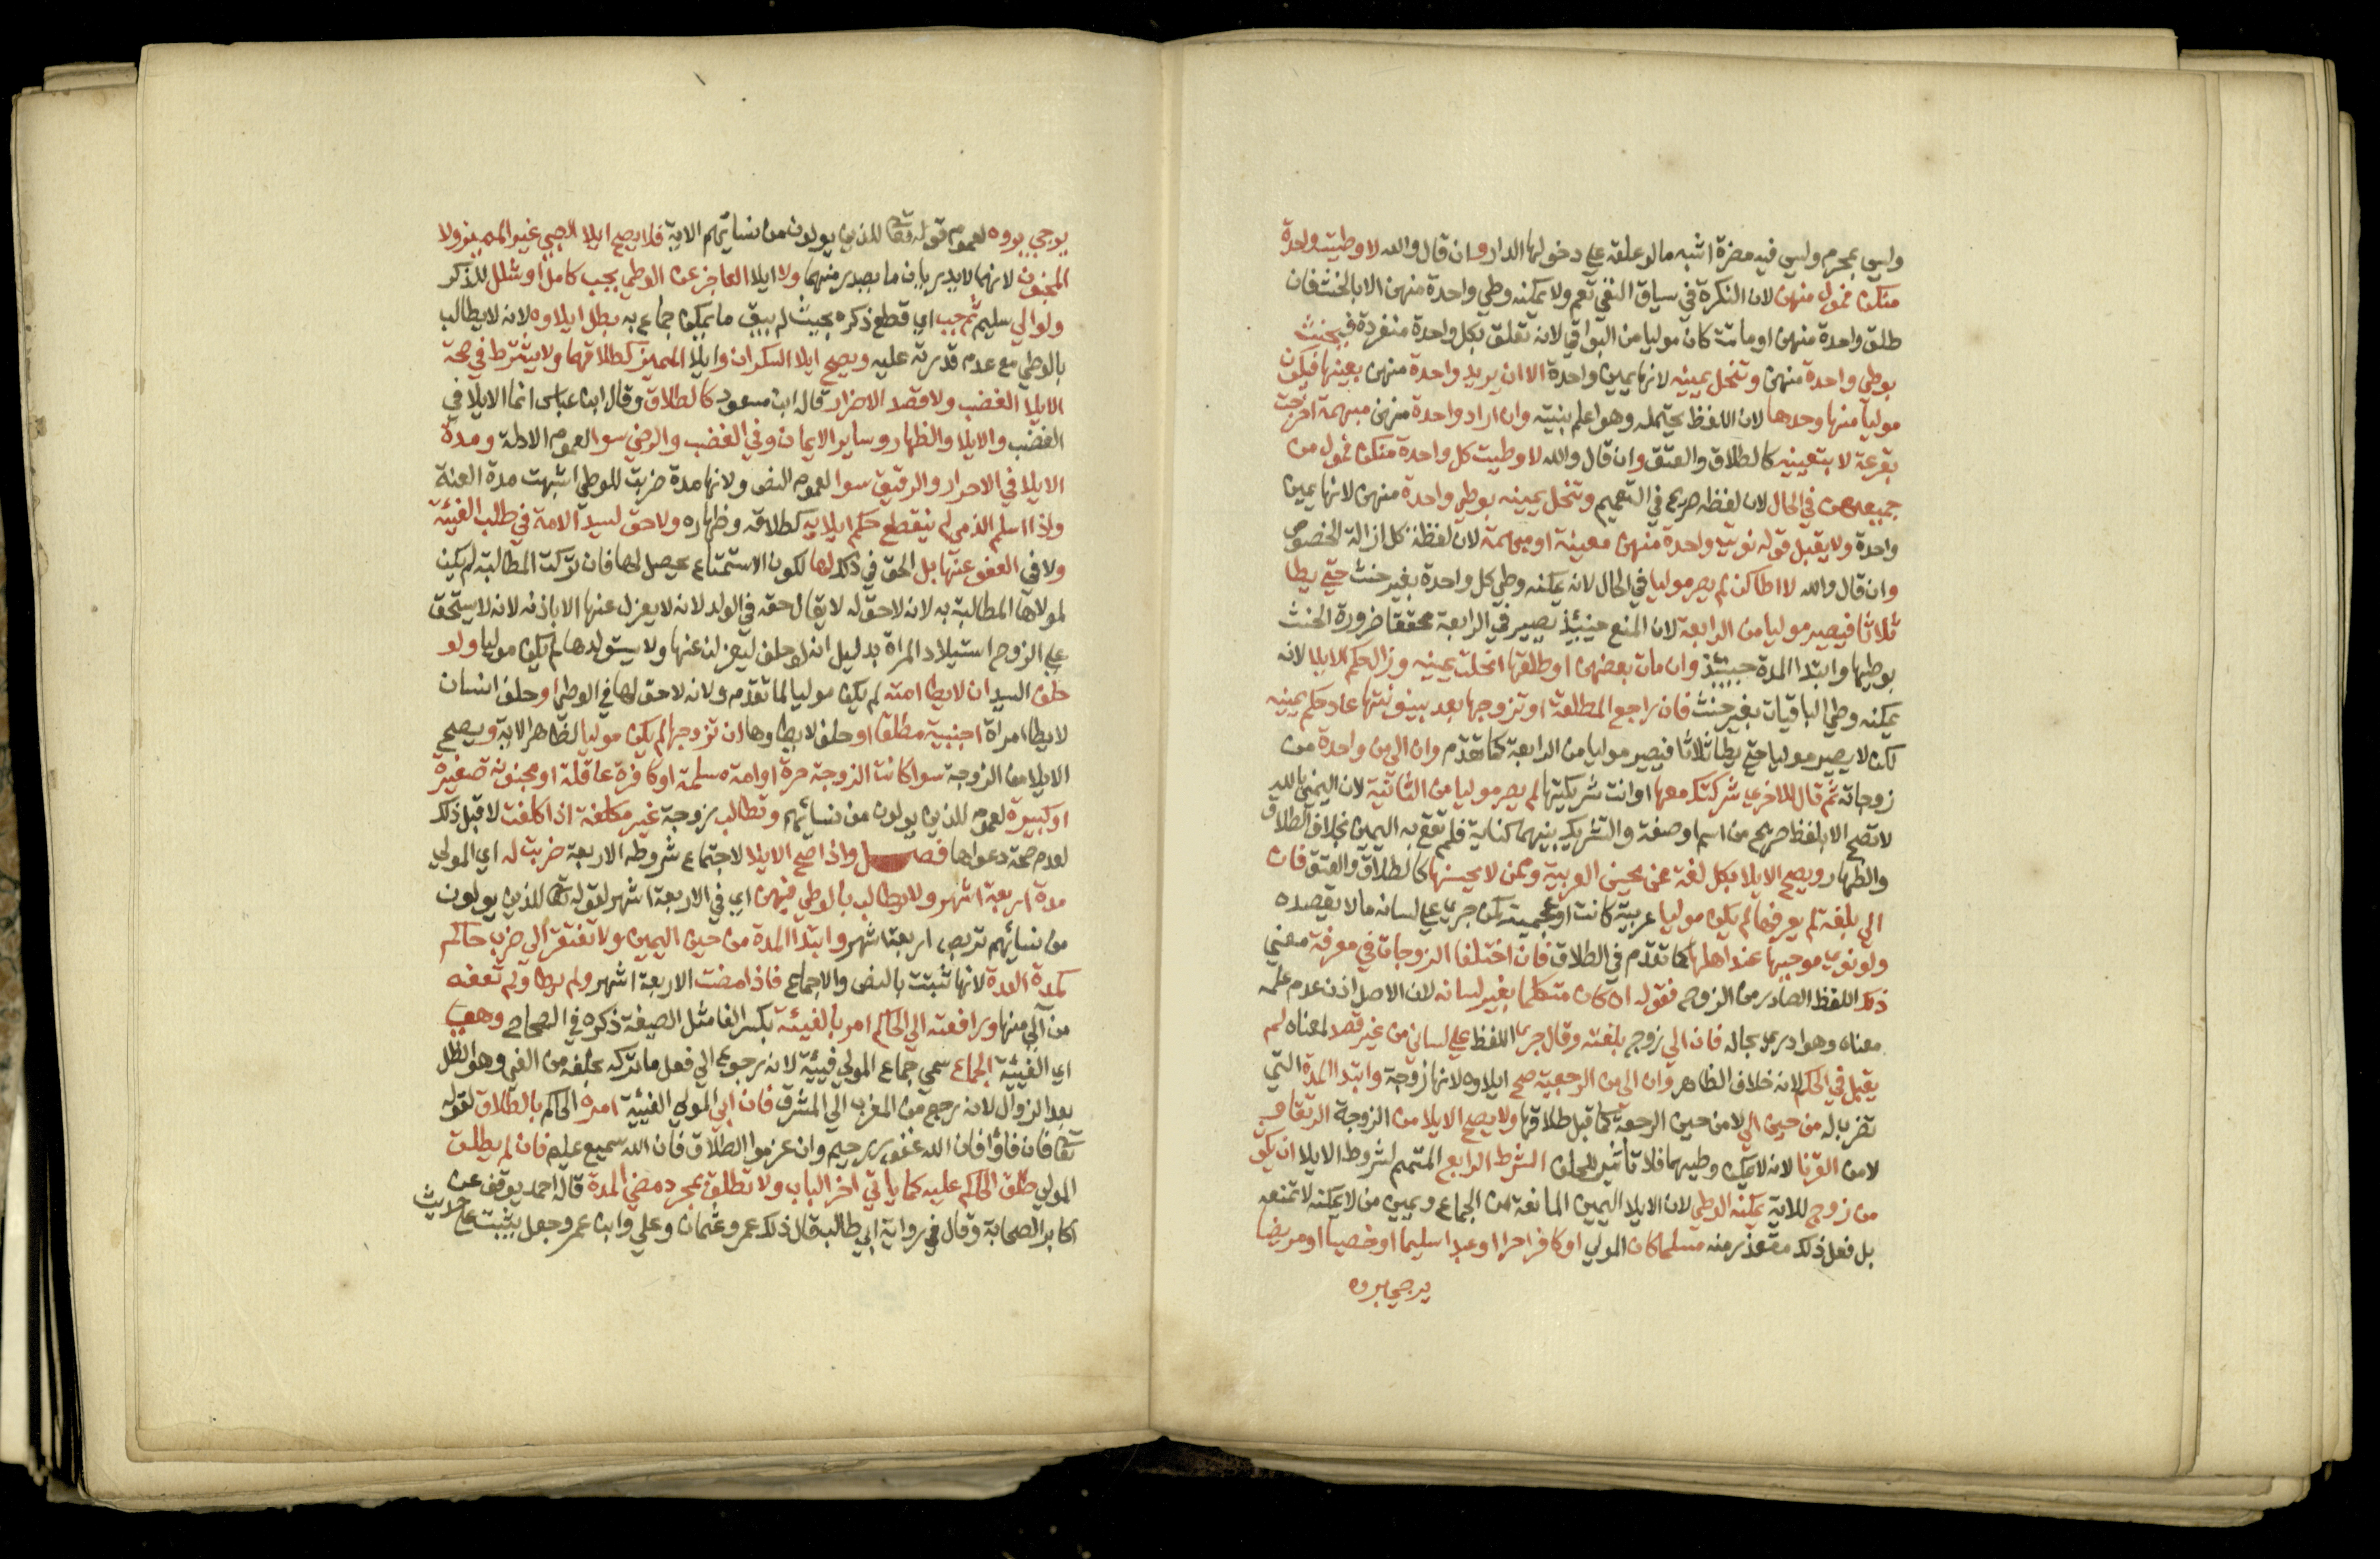 وليس بمحرم وليس فيه مضرة اشبه ما لو علقه على دخولها الدار وان قال والله لا وطيت واحدة
منكن فمول منهن لان النكرة في سياق النفي تعم ولا يمكنه وطي واحدة منهن الا بالحنث فان
طلق واحدة منهن او ماتت كان موليا من البواقي لانه تعلق بكل واحدة منفردة فيحنث
بوطي واحدة منهن وتنحل يمينه لانها يمين واحدة الا ان يريد واحدة منهن بعينها فيكون
موليا منها وحدها لان اللفظ يحتمله وهو اعلم بنيته وان اراد واحدة منهن مبهمة اخرجت
بقرعة لا بتعيينه كالطلاق والعتق وان قال والله لا وطيت كل واحدة منكن فمول من
جميعهن في الحال لان لفظه صريح في التعميم وتنحل يمينه بوطي واحدة منهن لانها يمين
واحدة ولا يقبل قوله نويت واحدة منهن معينة او مبهمة لان لفظة كل ازالة الخصوص
وان قال والله لا اطاكن لم يصر موليا في الحال لانه يمكنه وطي كل واحدة بغير حنث حتى يطا
ثلاثا فيصير موليا من الرابعة لان المنع حينئذ يصير في الرابعة محققا ضرورة الحنث
بوطيها وابتدا المدة حينئذ وان مات بعضهن او طلقها انحلت يمينه وزال حكم الايلا لانه
يمكنه وطي الباقيات بغير حنث فان راجع المطلقة او تزوجها بعد بينونتها عاد حكم يمينه
لكن لا يصير موليا حتى يطا ثلاثا فيصير موليا من الرابعة كما تقدم وان الى من واحدة من
زوجاته ثم قال للاخري شركتك معها او انت شريكتها لم يصر موليا من الثانية لان اليمين بالله
لا تصح الا بلفظ صريح من اسم او صفة والتشريك بينهما كناية فلم تقع به اليمين بخلاف الطلاق
والظهار ويصح الايلا بكل لغة ممن يحسن العربية وممن لا يحسنها كالطلاق والعتق فان
الى بلغة لم يعرفها لم يكن موليا عربية كانت او عجمية كمن جري على لسانه ما لا يقصده
ولو نوي موجبها عند اهلها كما تقدم في الطلاق فان اختلفا الزوجات في معرفة معني
ذلك اللفظ الصادر من الزوج فقوله ان كان متكلما بغير لسانه لان الاصل اذن عدم علمه
معناه وهو ادري بحاله فان الى زوج بلغته وقال جري اللفظ على لساني من غير قصد لمعناه لم
يقبل في الحكم لانه خلاف الظاهر وان الى من الرجعية صح ايلاوه لانها زوجة وابتدا المدة التي
تضرب له من حين الى لا من حين الرجعة كما قبل طلاقها ولا يصح الايلا من الزوجة الرتقا و
لا من القرنا لانه لا يمكن وطيهما فلا تاثير للحلف الشرط الرابع المتمم لشروط الايلا ان يكون
من زوج للاية يمكنه الوطي لان الايلا اليمين المانعة من الجماع ويمين من لا يمكنه لا تمنعه
بل فعل ذلك متعذر منه مسلما كان المولي او كافرا حرا او عبدا سليما او خصيا او مريضا
يرجي بروه
يرجي بروه لعموم قوله تعالى للذين يولون من نسائهم الاية فلا يصح ايلا الصبي غير المميز ولا
المجنون لانهما لا يدريان ما يصدر منهما ولا ايلا العاجز عن الوطي بجب كامل او شلل للذكر
ولو الي سليم ثم جب اي قطع ذكره بحيث لم يبق ما يمكن جماع به بطل ايلاوه لانه لا يطالب
بالوطي مع عدم قدرته عليه ويصح ايلا السكران وايلا المميز كطلاقهما ولا يشترط في صحة
الايلا الغضب ولا قصد الاضرار قاله ابن مسعود كالطلاق وقال ابن عباس انما الايلا في
الغضب والايلا والظهار وساير الايمان وفي الغضب والرضي سوا لعموم الادلة ومدة
الايلا في الاحرار والرقيق سوا لعموم النص ولانها مدة ضربت للوطي اشبهت مدة العنة
واذا اسلم الذمي لم ينقطع حكم ايلايه كطلاقه وظهاره ولا حق لسيد الامة في طلب الفيئة
ولا في العفو عنها بل الحق في ذلك لها لكون الاستمتاع يحصل لها فان تركت المطالبة لم يكن
لمولاها المطالبة به لانه لا حق له لا يقال حقه في الولد لانه لا يعزل عنها الا باذنه لانه لا يستحق
على الزوج استيلاد المراة بدليل انه لو حلف ليعزلن عنها ولا يستولدها لم يكن موليا ولو
حلف السيد ان لا يطا امته لم يكن موليا لما تقدم ولانه لا حق لها في الوطي او حلف انسان
لا يطا امراة اجنبية مطلقا او حلف لا يطاوها ان تزوجها لم يكن موليا لظاهر الاية ويصح
الايلا من الزوجة سوا كانت الزوجة حرة او امة مسلمة او كافرة عاقلة او مجنونة صغيرة
او كبيرة لعموم للذين يولون من نسائهم وتطالب زوجة غير مكلفة اذا كلفت لا قبل ذلك
لعدم صحة دعواها فصل واذا صح الايلا لاجتماع شروطه الاربعة ضربت له اي المولي
مدة اربعة اشهر ولا يطالب بالوطي فيهن اي في الاربعة اشهر لقوله تعالى للذين يولون
من نسائهم تربص اربعة اشهر وابتدا المدة من حين اليمين ولا تفتقر الى ضرب حاكم
كمدة العدة لانها ثبتت بالنص والاجماع فاذا مضت الاربعة اشهر ولم يطا ولم تعفه
من الي منها ورافعته الي الحاكم امر بالفيئة بكسر الفا مثل الصيغة ذكره في الصحاح وهي
اي الفيئة الجماع سمي جماع المولي فيئة لانه رجوع الي فعل ما تركه بحلفه من الفي وهو الظل
بعد الزوال لانه رجع من المغرب الي المشرق فان ابي المولي الفيئة امره الحاكم بالطلاق لقوله
تعالى فان فاؤا فان الله غفور رحيم وان عزموا الطلاق فان الله سميع عليم فان لم يطلق
المولي طلق الحاكم عليه كما ياتي اخر الباب ولا تطلق بمجرد مضي المدة قال احمد يوقف عن
اكابر الصحابة وقال في رواية ابي طالب قال ذلك عمر وعثمان وعلي وابن عمر وجعل يثبت حديث